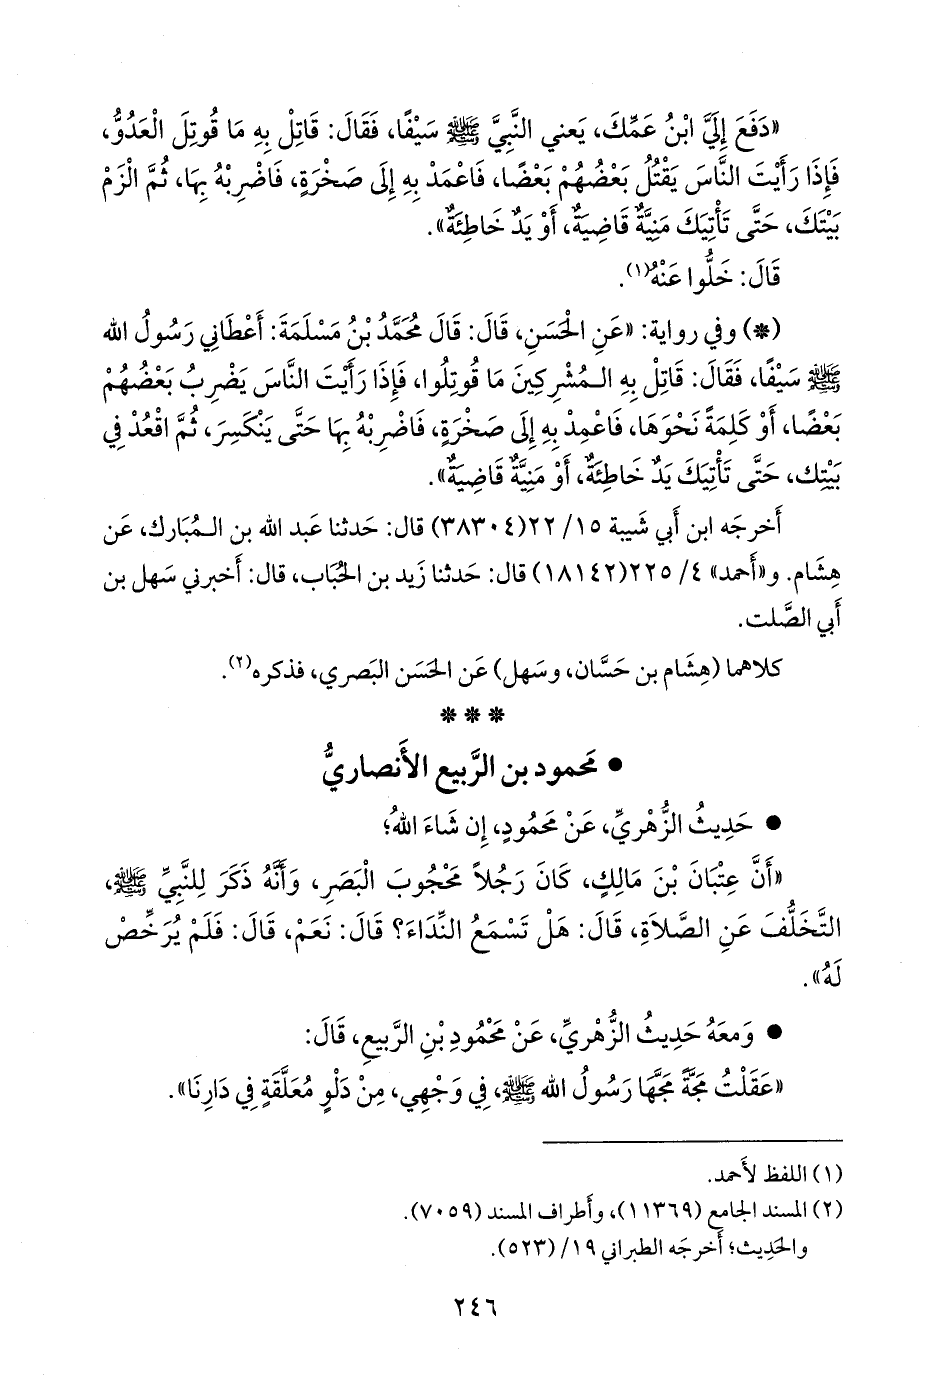 «دَفَعَ إِلَيَّ ابْنُ عَمِّكَ، يَعني النَّبِيَّ ﷺ سَيْفًا، فَقَالَ: قَاتِلْ بِهِ مَا قُوتِلَ الْعَدُوُّ،
فَإِذَا رَأَيْتَ النَّاسَ يَقْتُلُ بَعْضُهُمْ بَعْضًا، فَاعْمَدْ بِهِ إِلَى صَخْرَةٍ، فَاضْرِبْهُ بِهَا، ثُمَّ الْزَمْ
بَيْتَكَ، حَتَّى تَأْتِيَكَ مَنِيَّةٌ قَاضِيَةٌ، أَوْ يَدٌ خَاطِئَةٌ».
قَالَ: خَلُّوا عَنْهُ(١).
(*) وفي رواية: «عَنِ الْحَسَنِ، قَالَ: قَالَ مُحَمَّدُ بْنُ مَسْلَمَةَ: أَعْطَانِي رَسُولُ الله
ﷺ سَيْفًا، فَقَالَ: قَاتِلْ بِهِ الـمُشْرِكِينَ مَا قُوتِلُوا، فَإِذَا رَأَيْتَ النَّاسَ يَضْرِبُ بَعْضُهُمْ
بَعْضًا، أَوْ كَلِمَةً نَحْوَهَا، فَاعْمِدْ بِهِ إِلَى صَخْرَةٍ، فَاضْرِبْهُ بِهَا حَتَّى يَنْكَسِرَ، ثُمَّ اقْعُدْ فِي
بَيْتِك، حَتَّى تَأْتِيَكَ يَدٌ خَاطِئَةٌ، أَوْ مَنِيَّةٌ قَاضِيَةٌ».
أَخرجَه ابن أَبي شَيبة ١٥/ ٢٢(٣٨٣٠٤) قال: حَدثنا عَبد الله بن الـمُبارك، عَن
هِشَام. و«أَحمد» ٤/ ٢٢٥(١٨١٤٢) قال: حَدثنا زَيد بن الحُبَاب، قال: أَخبرني سَهل بن
أَبي الصَّلت.
كلاهما (هِشَام بن حَسَّان، وسَهل) عَن الحَسَن البَصري، فذكره(٢).
* * *
● مَحمود بن الرَّبيع الأَنصاريُّ
● حَدِيثُ الزُّهْرِيِّ، عَنْ مَحْمُودٍ، إِن شَاءَ اللهُ؛
«أَنَّ عِتْبَانَ بْنَ مَالِكٍ، كَانَ رَجُلاً مَحْجُوبَ الْبَصَرِ، وَأَنَّهُ ذَكَرَ لِلنَّبِيِّ ﷺ،
التَّخَلُّفَ عَنِ الصَّلاَةِ، قَالَ: هَلْ تَسْمَعُ النِّدَاءَ؟ قَالَ: نَعَمْ، قَالَ: فَلَمْ يُرَخِّصْ
لَهُ».
● وَمعَهُ حَدِيثُ الزُّهْرِيِّ، عَنْ مَحْمُودِ بْنِ الرَّبِيعِ، قَالَ:
«عَقَلْتُ مَجَّةً مَجَّهَا رَسُولُ الله ﷺ، فِي وَجْهِي، مِنْ دَلْوٍ مُعَلَّقَةٍ فِي دَارِنَا».
(١) اللفظ لأَحمد.
(٢) المسند الجامع (١١٣٦٩)، وأَطراف المسند (٧٠٥٩).
والحَدِيث؛ أَخرجَه الطبراني ١٩/ (٥٢٣).
٢٤٦